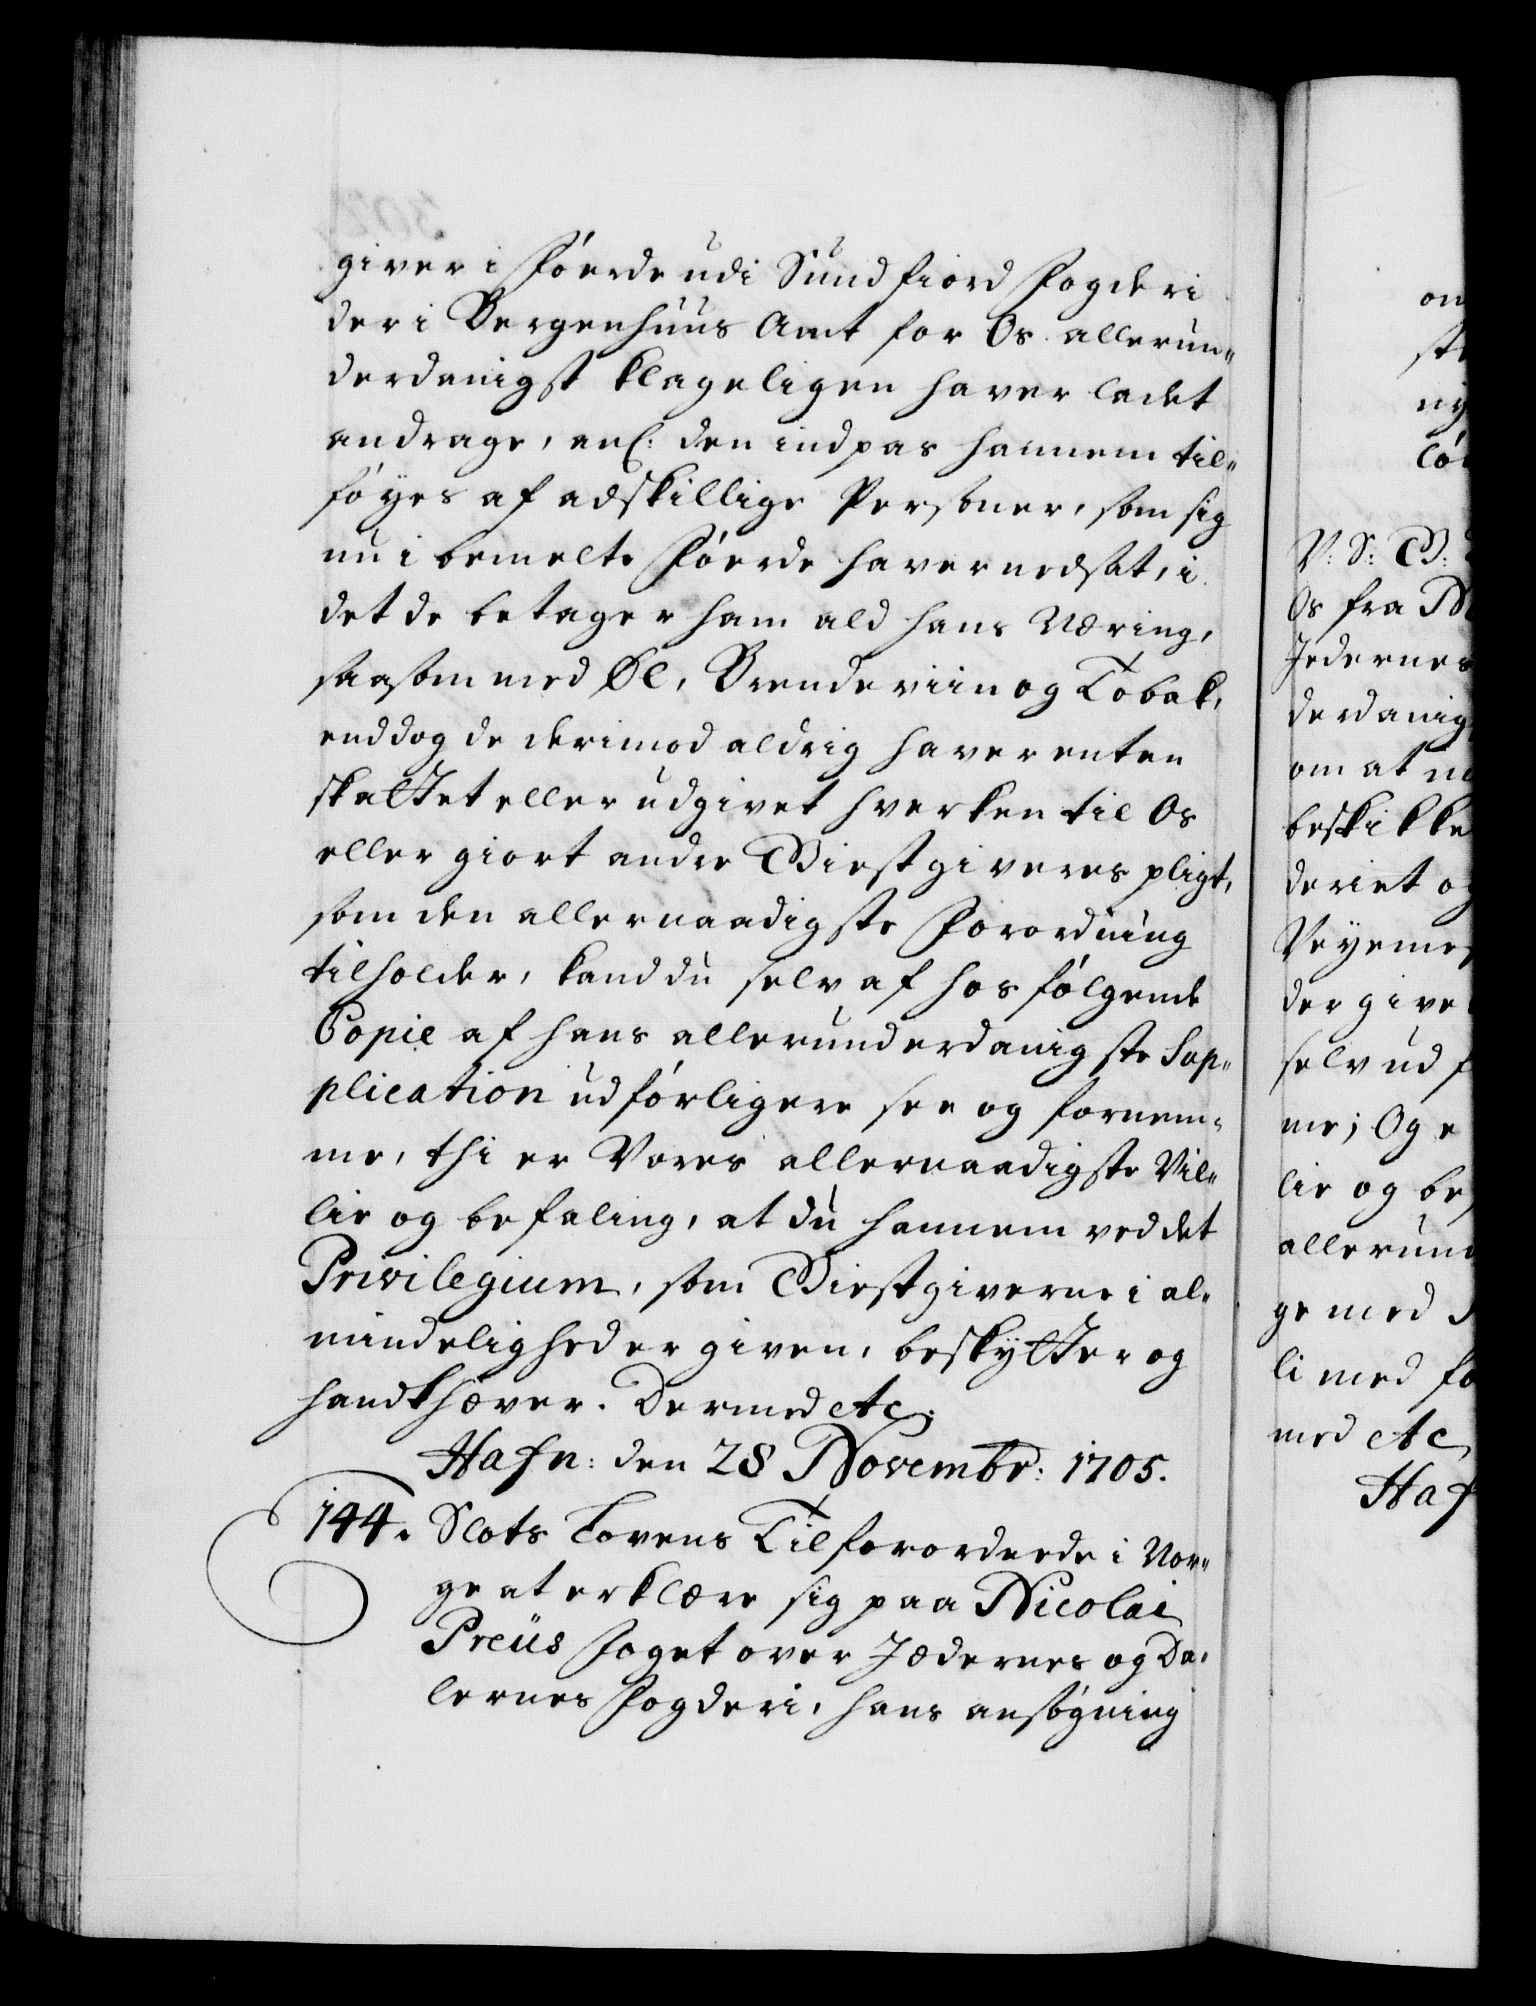 giver i Förde udi Sundfiord Fogderi
der i Bergenhuus Amt for Os allerun„
derdanigst klageligen haver ladet
andrage, anl: den indpas hannem til„
föyes af adskillige Personer, som sig
nu i bemelte Förde haver nedsat, i
det de betager ham ald hans Næring,
saasom med Øl, Brendeviin og Tobak,
enddog de derimod aldrig haver enten
skattet eller udgivet hverken til Os
eller giort andre Giestgiveres pligt,
som den allernaadigste Forordning
tilholder, kand du selv af hosfölgende
Copie af hans allerunderdanigste Sup„
plication udförligere see og fornem„
me, thi er Vores allernaadigste Vil„
lie og befaling, at du hannem ved det
Privilegium, som Giestgiverne i al„
mindelighed er given, beskytter og
handthæver. Dermed etc:
Hafn: den 28 Novembr: 1705.
144. Slots Lovens Tilforordnede i Nor„
ge at erklære sig paa Nicolai
Preüs Foget over Jædernes og Da„
lernes Fogderi, hans ansögning
on
ny
V: S: G:
Os fra
Jedernes
derdanig
om at
beskikke
deriet og
Veyemes
dergive
selv ud f
me; Og e
lie og be
allerund
ge med
li med fo
med etc
Haf